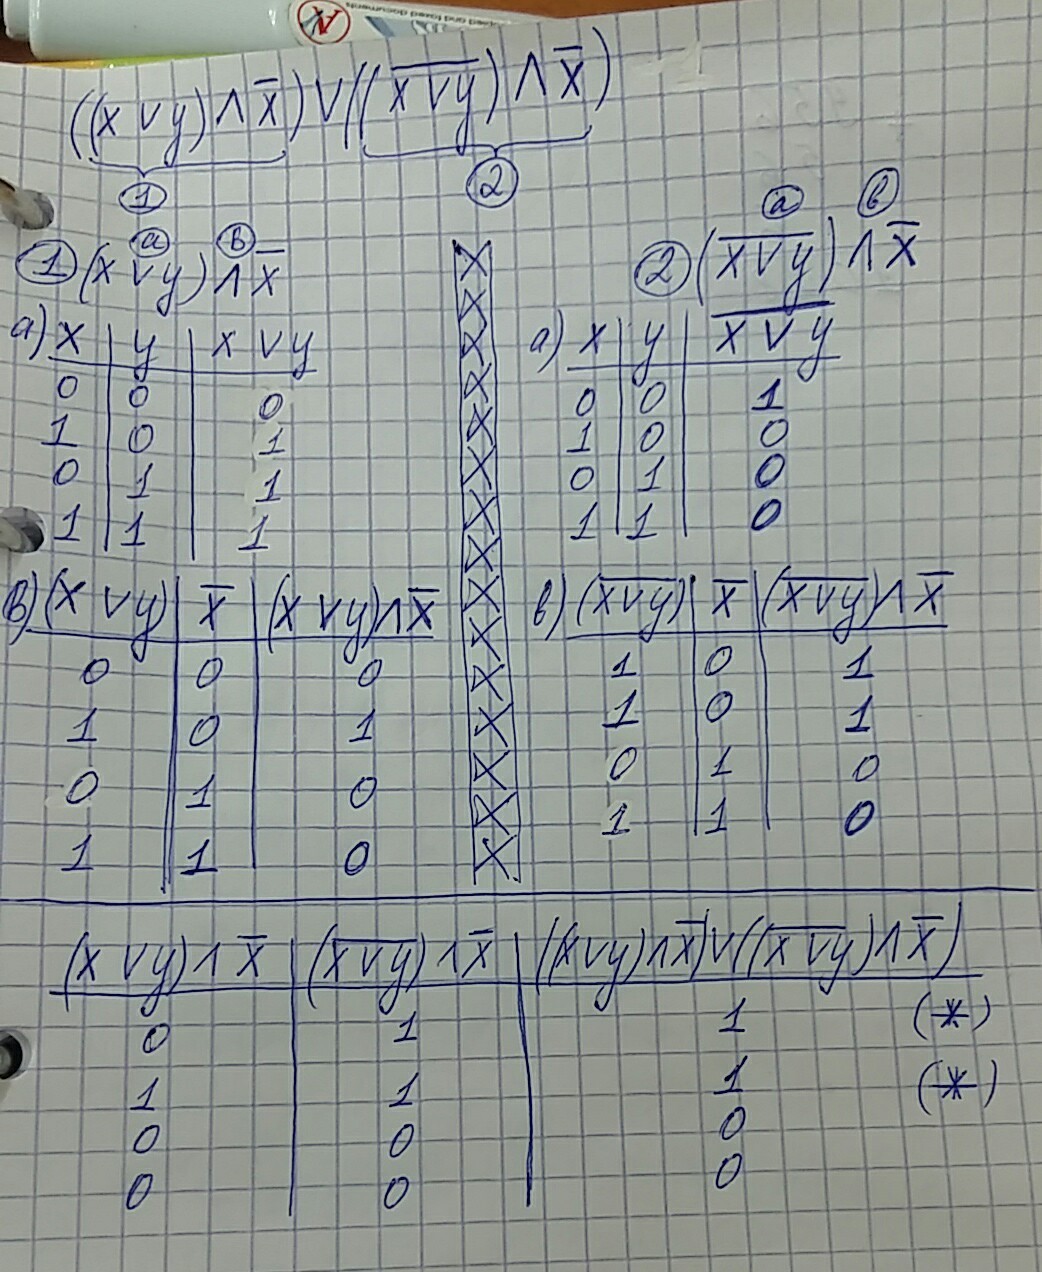 ((x ∨ y) ∧ x̄) ∨ ((x̅ ̅∨̅ ̅y̅) ∧ x̄)
1 2
1 (x ∨ y) ∧ x̄
a в
a) x | y | x ∨ y
0 | 0 | 0
1 | 0 | 1
0 | 1 | 1
1 | 1 | 1
в) (x ∨ y) | x̄ | (x ∨ y) ∧ x̄
0 | 0 | 0
1 | 0 | 1
0 | 1 | 0
1 | 1 | 0
a в
2 (x̅ ̅∨̅ ̅y̅) ∧ x̄
a) x | y | x̅ ̅∨̅ ̅y̅
0 | 0 | 1
1 | 0 | 0
0 | 1 | 0
1 | 1 | 0
в) (x̅ ̅∨̅ ̅y̅) | x̄ | (x̅ ̅∨̅ ̅y̅) ∧ x̄
1 | 0 | 1
1 | 0 | 1
0 | 1 | 0
1 | 1 | 0
(x ∨ y) ∧ x̄ | (x̅ ̅∨̅ ̅y̅) ∧ x̄ | ((x ∨ y) ∧ x̄) ∨ ((x̅ ̅∨̅ ̅y̅) ∧ x̄)
0 | 1 | 1 (*)
1 | 1 | 1 (*)
0 | 0 | 0
0 | 0 | 0